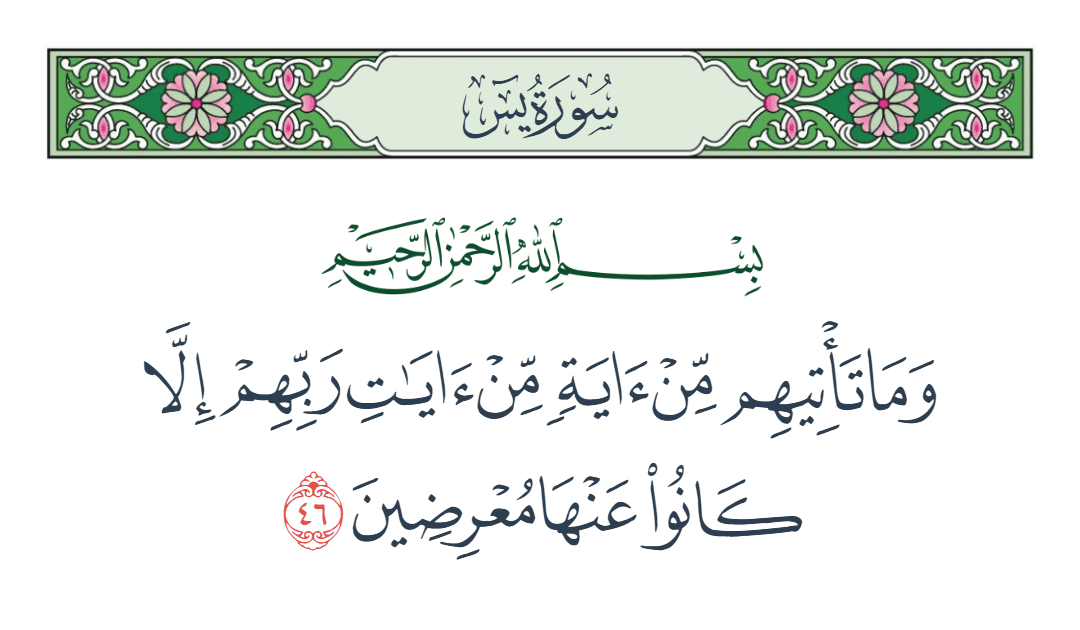 سُورَةُ يسٓ
بِسْمِ ٱللَّهِ ٱلرَّحْمَٰنِ ٱلرَّحِيمِ
وَمَا تَأْتِيهِم مِّنْ ءَايَةٍ مِّنْ ءَايَٰتِ رَبِّهِمْ إِلَّا
كَانُوا۟ عَنْهَا مُعْرِضِينَ ٤٦